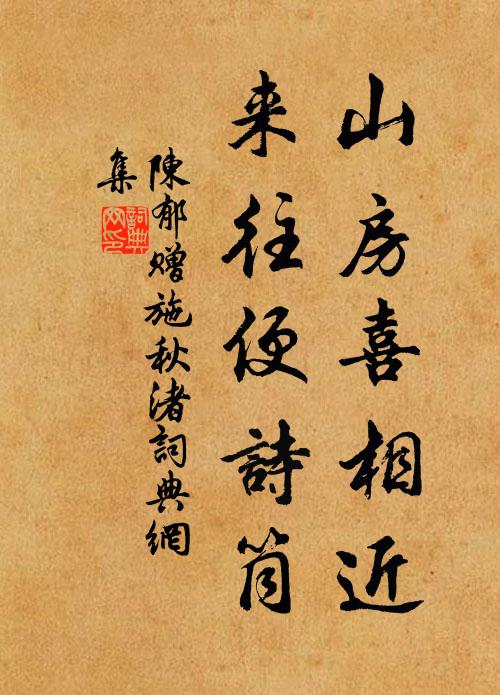 山房喜相近
来往便詩筒
陳郁赠施秋渚詞典網
集
詞典網印